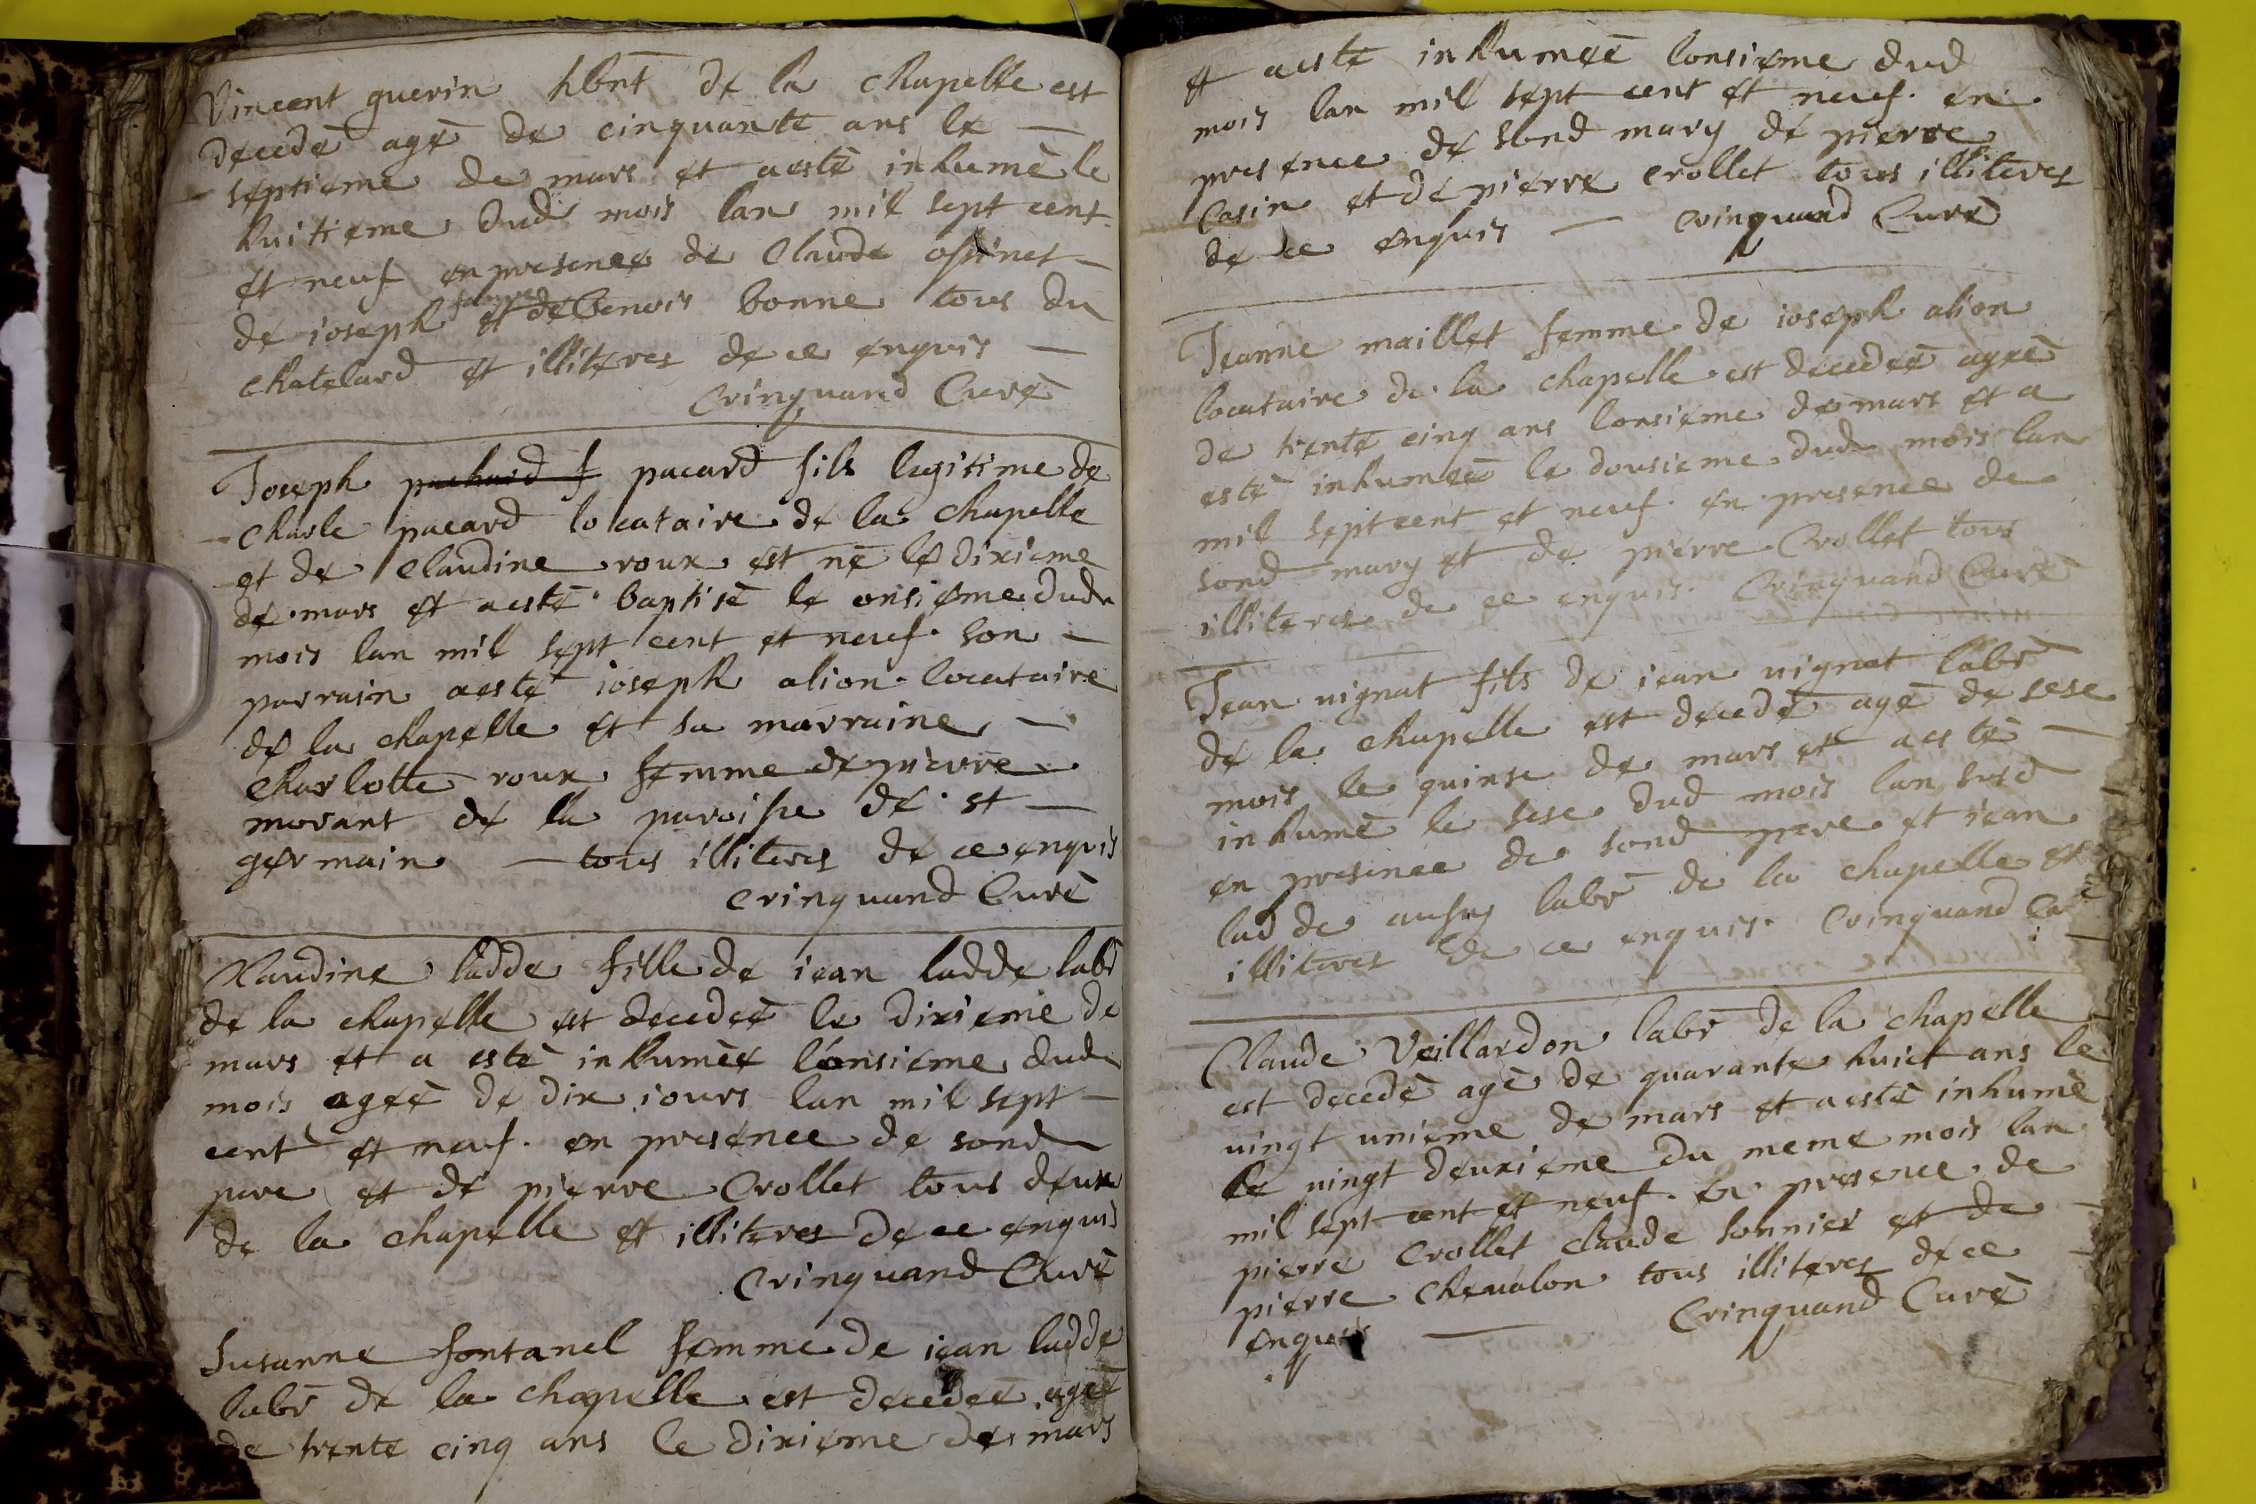 Vincent guerin hbnt de la chapelle est
decedé agé de cinquante ans le
septieme de mars et a esté inhumé le
huitieme dud mois lan mil sept cent
et neuf en presence de Claude
de ioseph et de benois bonne tous du
chatelard et illiteres de ce enquis
Crinquand Curé
Joseph pachard f pacard fils legitime de
charle pacard locataire de la chapelle
et de claudine roux est né le dixieme
de mars et a esté baptisé le onsieme dud
mois lan mil sept cent et neuf. son
parrain a esté ioseph alion locataire
de la chapelle et sa marraine
charlotte roux femme de pierre
morant de la paroisse de st
germain tous illiteres de ce enquis
crinquand Curé
Claudine ladde fille de iean ladde labr
de la chapelle est decedeé le dixieme de
mars et a esté inhumée l'onsieme dud
mois ageé de dix iours lan mil sept
cent et neuf. en presence de sond
pere et de pierre Crollet tous deux
de la chapelle et illiteres de ce enquis
Crinquand Curé
Susanne fontanel femme de iean ladde
labr de la chapelle est decedeé ageé
de trente cinq ans le dixieme de mars
et a esté inhumeé lonsieme dud
mois lan mil sept cent et neuf. en
presence de sond mary de pierre
Casin et de pierre crollet tous illiteres
de ce enquis crinquand Curé
Jeanne maillet femme de ioseph alion
locataire de la chapelle est decedeé ageé
de trente cinq ans lonsieme de mars et a
esté inhumeé le dousieme dud mois lan
mil sept cent et neuf. en presence de
sond mary et de pierre Crollet tous
illiteres de ce enquis. Crinquand Curé
Jean vignat fils de iean vignat labr
de la chapelle est decedé agé de sese
mois le quinse de mars et a esté
inhumé le sese dud mois lan susd
en presence de sond pere et iean
ladde aussy labr de la chapelle et
illiteres de ce enquis. Crinquand Curé
Claude Veillardon labr de la chapelle
est decedé agé de quarante huict ans le
vingt unieme de mars et a esté inhumé
le vingt deuxieme du meme mois lan
mil sept cent et neuf. en presence de
pierre Crollet claude sonnier et de
pierre chevalon tous illiteres de ce
enquis Crinquand Curé